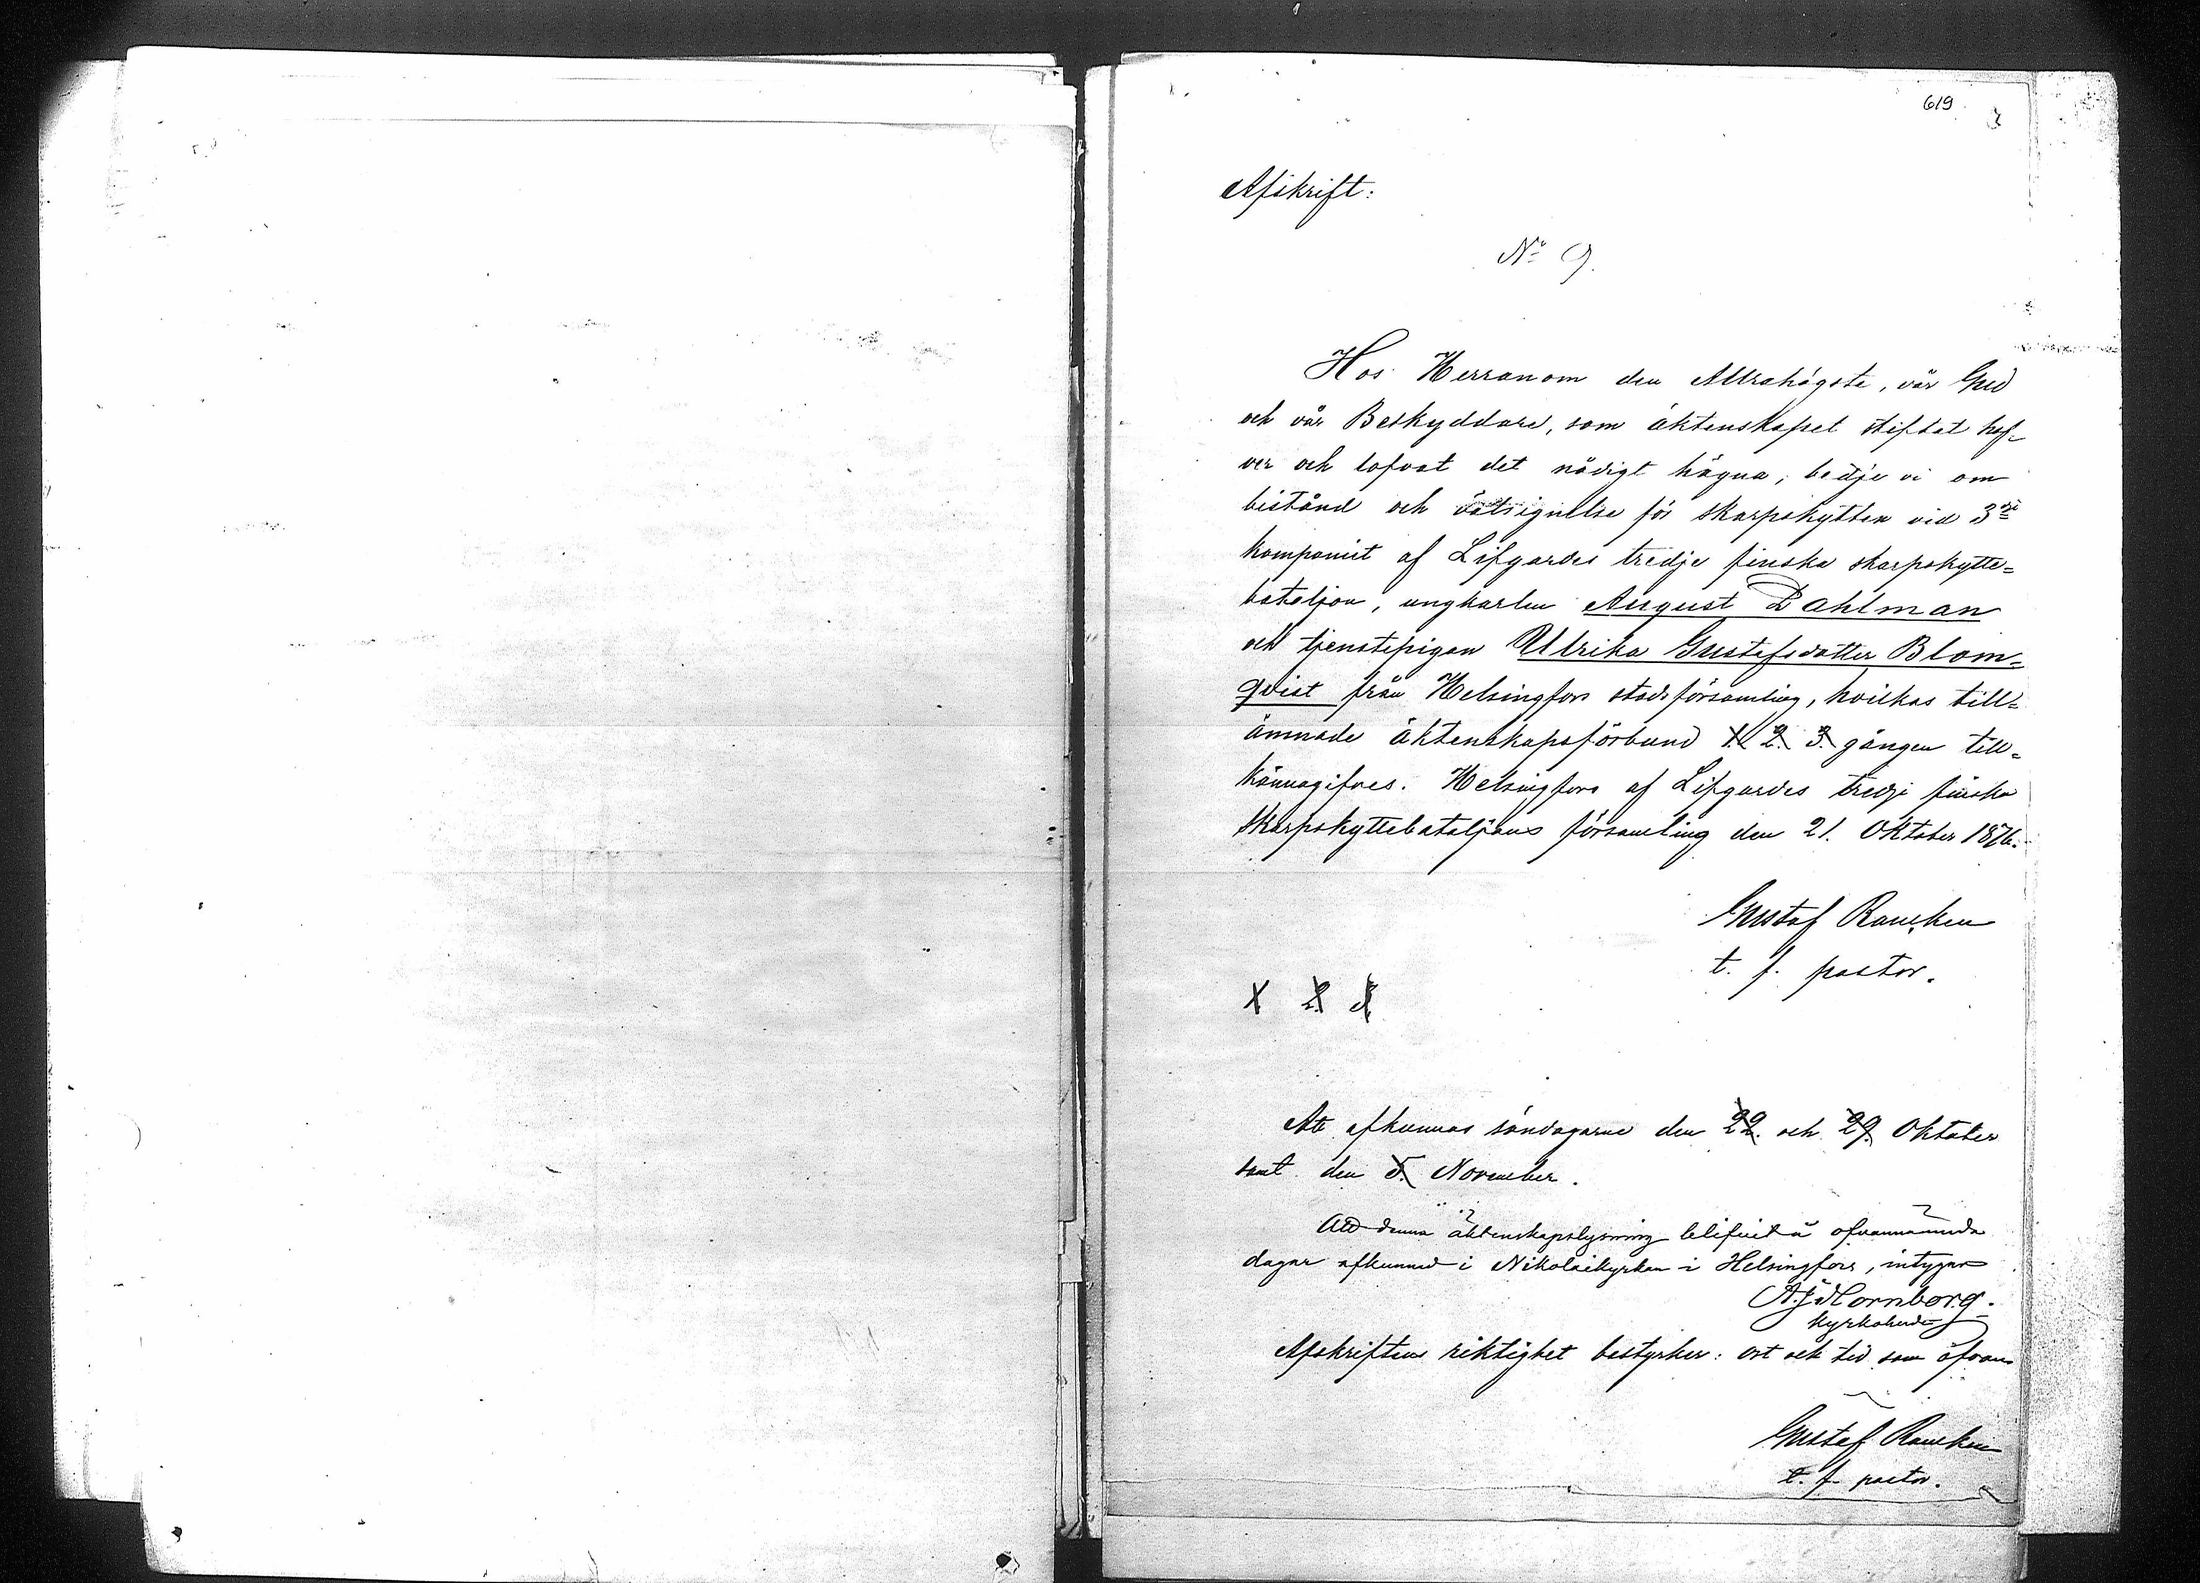 619
Afskrift:
No 9.
Hos Herranom den Allrahögste, vår Gud
och vår Beskyddare, som äktenskapet stiftat haf-
ver och lofvat det nådigt hägna, bedje vi om
bistånd och välsignelse för skarpskytten vid 3dje
kompaniet af Lifgardes tredje finska skarpskytte=
bataljon, ungkarlen August Dahlman
och tjenstepigan Ulrika Gustafsdotter Blom=
qvist från Helsingfors stadsförsamling, hvilkas till=
ämnade äktenskapsförbund 1. 2. 3. gången till=
kännagifves. Helsingfors af Lifgardes tredje finska
skarpskyttebataljons församling den 21. Oktober 1876.
Gustaf Rancken
t. f. pastor.
1 2 3
Att afkunnas söndagarne den 22. och 29. Oktober
samt den 5. November.
Att denna äktenskapslysning blifvit å ofvannämnda
dagar afkunnad i Nikolaikyrkan i Helsingfors, intygar
A. J. Hornborg.
kyrkoherde
Afskriftens riktighet bestyrker: ort och tid som ofvan
Gustaf Rancken
t. f. pastor.